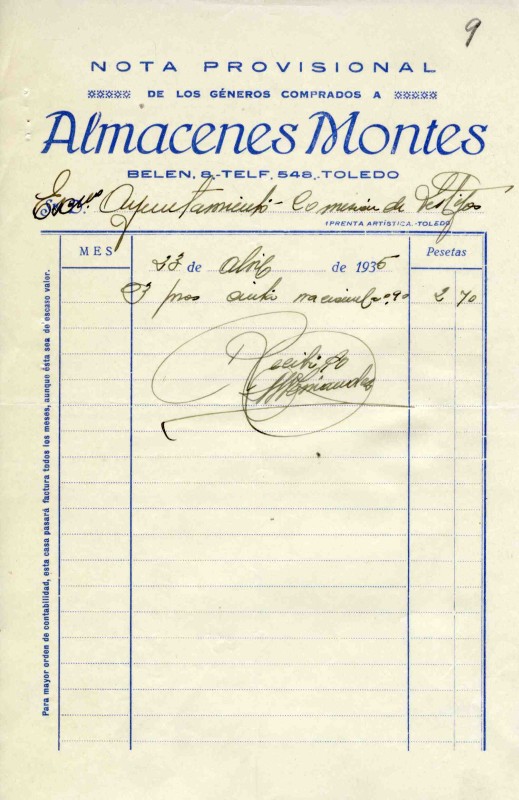 9
NOTA PROVISIONAL
DE LOS GÉNEROS COMPRADOS A
Almacenes Montes
BELEN, 8,-TELF, 548,-TOLEDO
Excmo Ayuntamiento - Comisión de Festejos
IPRENTA ARTÍSTICA.-TOLEDO
MES
Pesetas
23 de abril de 1935
3 pzas cinta nacional a 0'90 2 70
Recibido
Hernández
Para mayor orden de contabilidad, esta casa pasará factura todos los meses, aunque ésta sea de escaso valor.